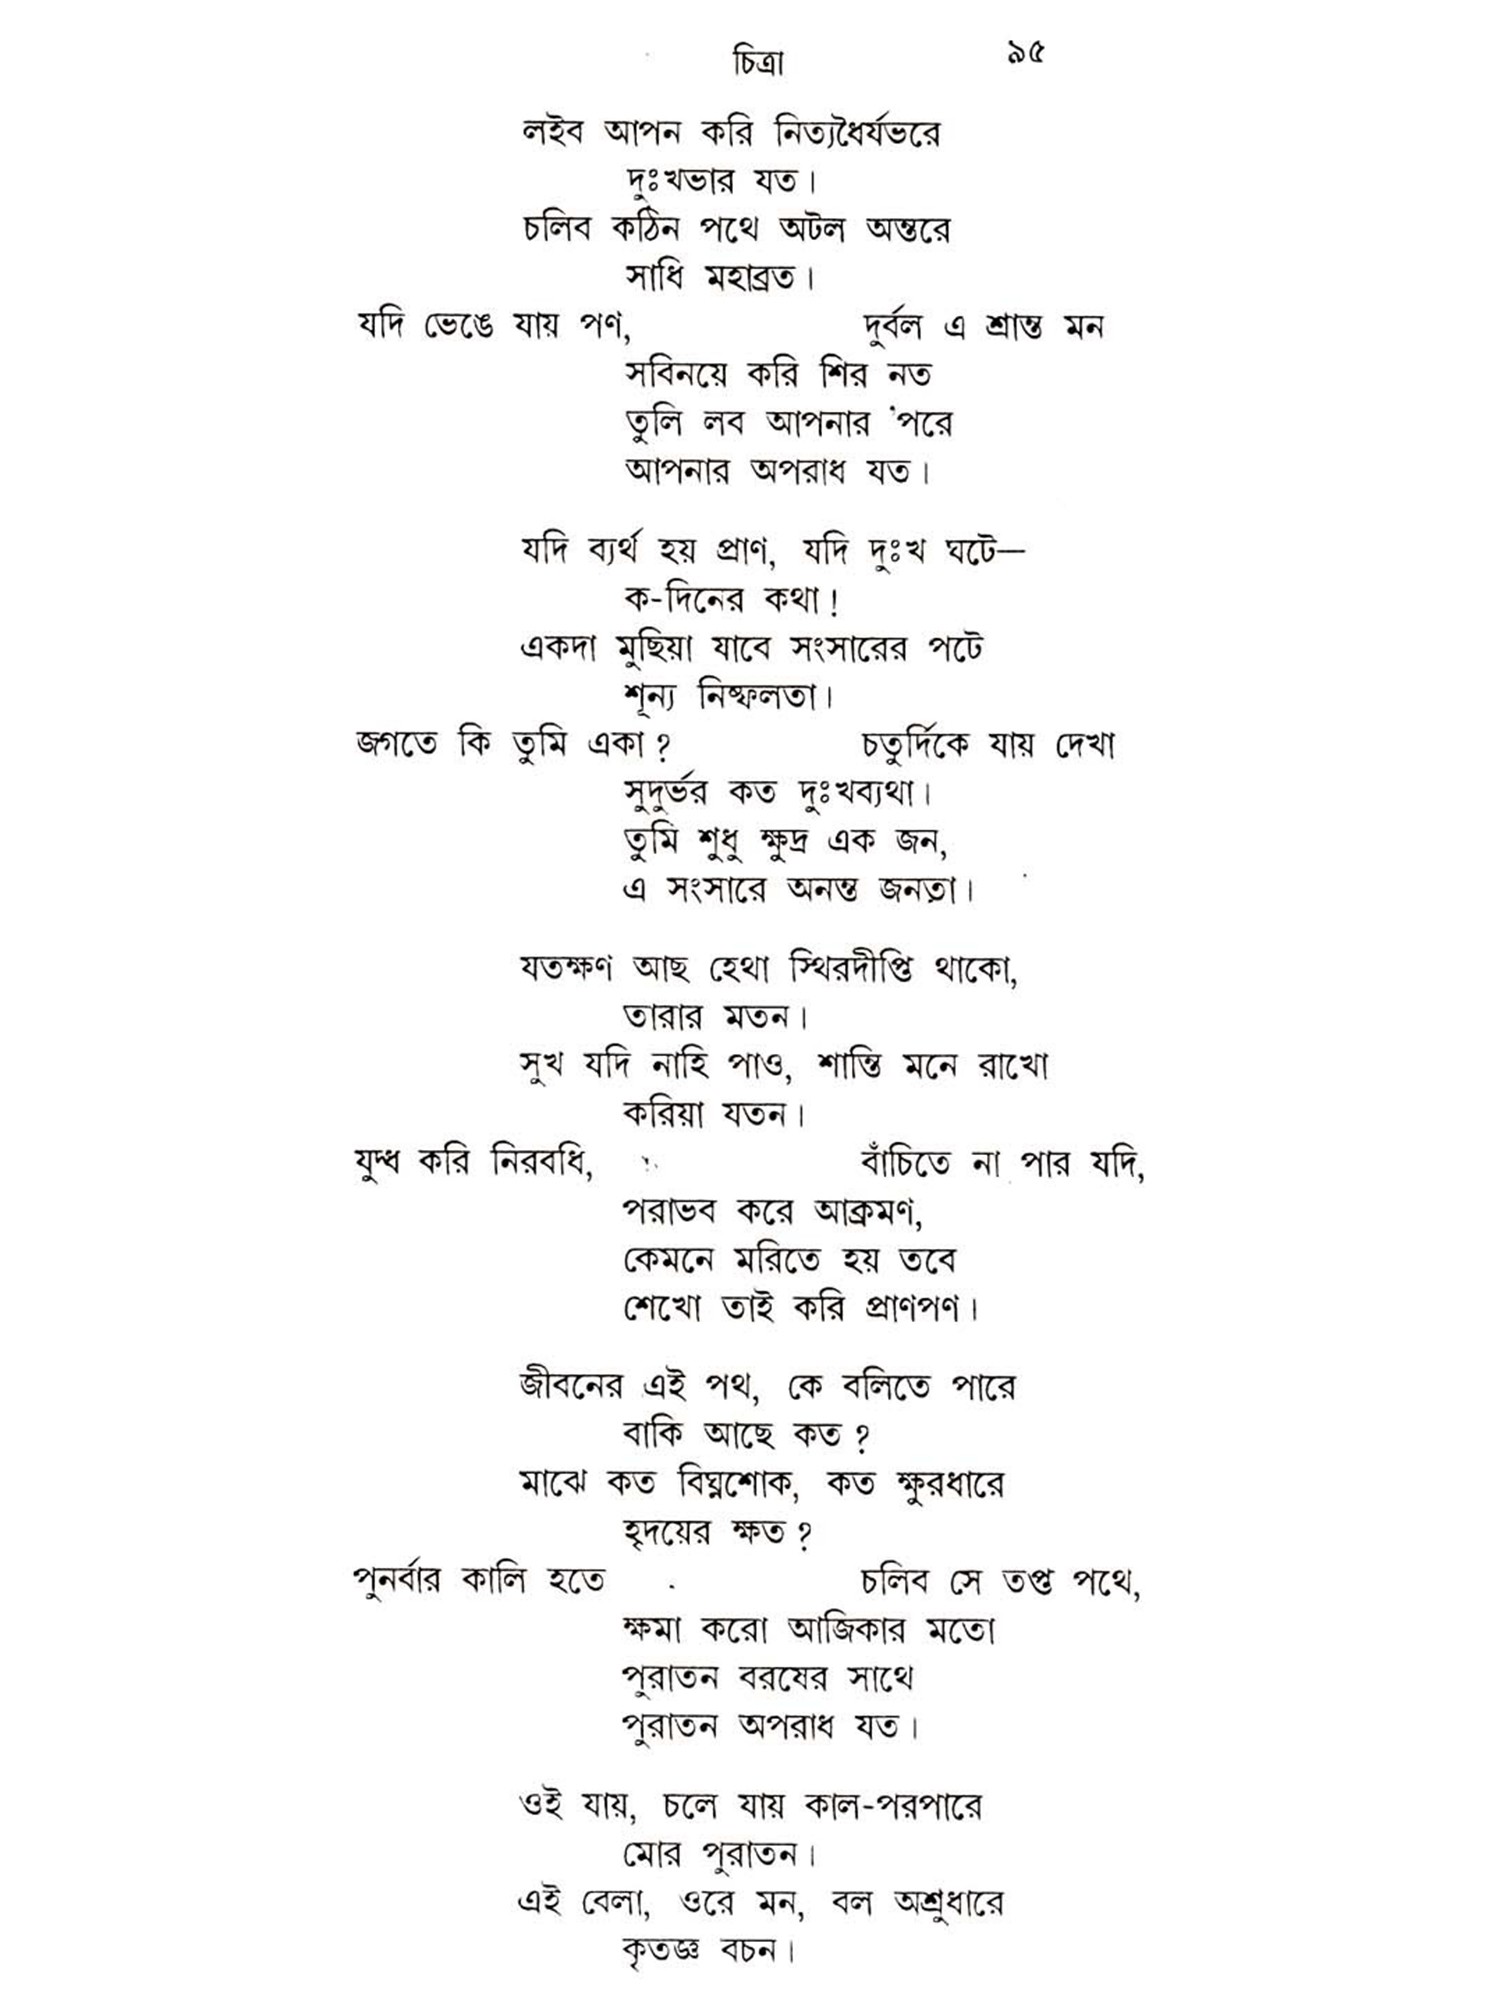 চিত্রা ৯৫
লইব আপন করি নিত্যধৈর্যভরে
দুঃখভার যত।
চলিব কঠিন পথে অটল অন্তরে
সাধি মহাব্রত।
যদি ভেঙে যায় পণ, দুর্বল এ শ্রান্ত মন
সবিনয়ে করি শির নত
তুলি লব আপনার 'পরে
আপনার অপরাধ যত।
যদি ব্যর্থ হয় প্রাণ, যদি দুঃখ ঘটে—
ক-দিনের কথা!
একদা মুছিয়া যাবে সংসারের পটে
শূন্য নিষ্ফলতা।
জগতে কি তুমি একা? চতুর্দিকে যায় দেখা
সুদুর্ভর কত দুঃখব্যথা।
তুমি শুধু ক্ষুদ্র এক জন,
এ সংসারে অনন্ত জনতা।
যতক্ষণ আছ হেথা স্থিরদীপ্তি থাকো,
তারার মতন।
সুখ যদি নাহি পাও, শান্তি মনে রাখো
করিয়া যতন।
যুদ্ধ করি নিরবধি, বাঁচিতে না পার যদি,
পরাভব করে আক্রমণ,
কেমনে মরিতে হয় তবে
শেখো তাই করি প্রাণপণ।
জীবনের এই পথ, কে বলিতে পারে
বাকি আছে কত?
মাঝে কত বিঘ্নশোক, কত ক্ষুরধারে
হৃদয়ের ক্ষত?
পুনর্বার কালি হতে চলিব সে তপ্ত পথে,
ক্ষমা করো আজিকার মতো
পুরাতন বরষের সাথে
পুরাতন অপরাধ যত।
ওই যায়, চলে যায় কাল-পরপারে
মোর পুরাতন।
এই বেলা, ওরে মন, বল অশ্রুধারে
কৃতজ্ঞ বচন।